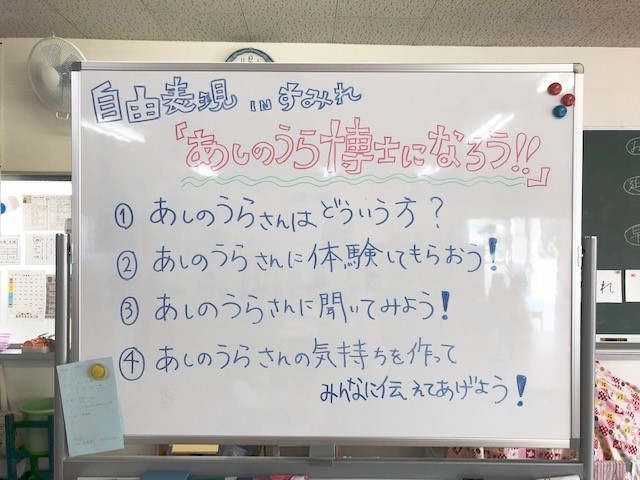 自由表現 IN すみれ
「あしのうら博士になろう!!」
① あしのうらさんはどういう方？
② あしのうらさんに体験してもらおう！
③ あしのうらさんに聞いてみよう！
④ あしのうらさんの気持ちを作って
みんなに伝えてあげよう！
れ